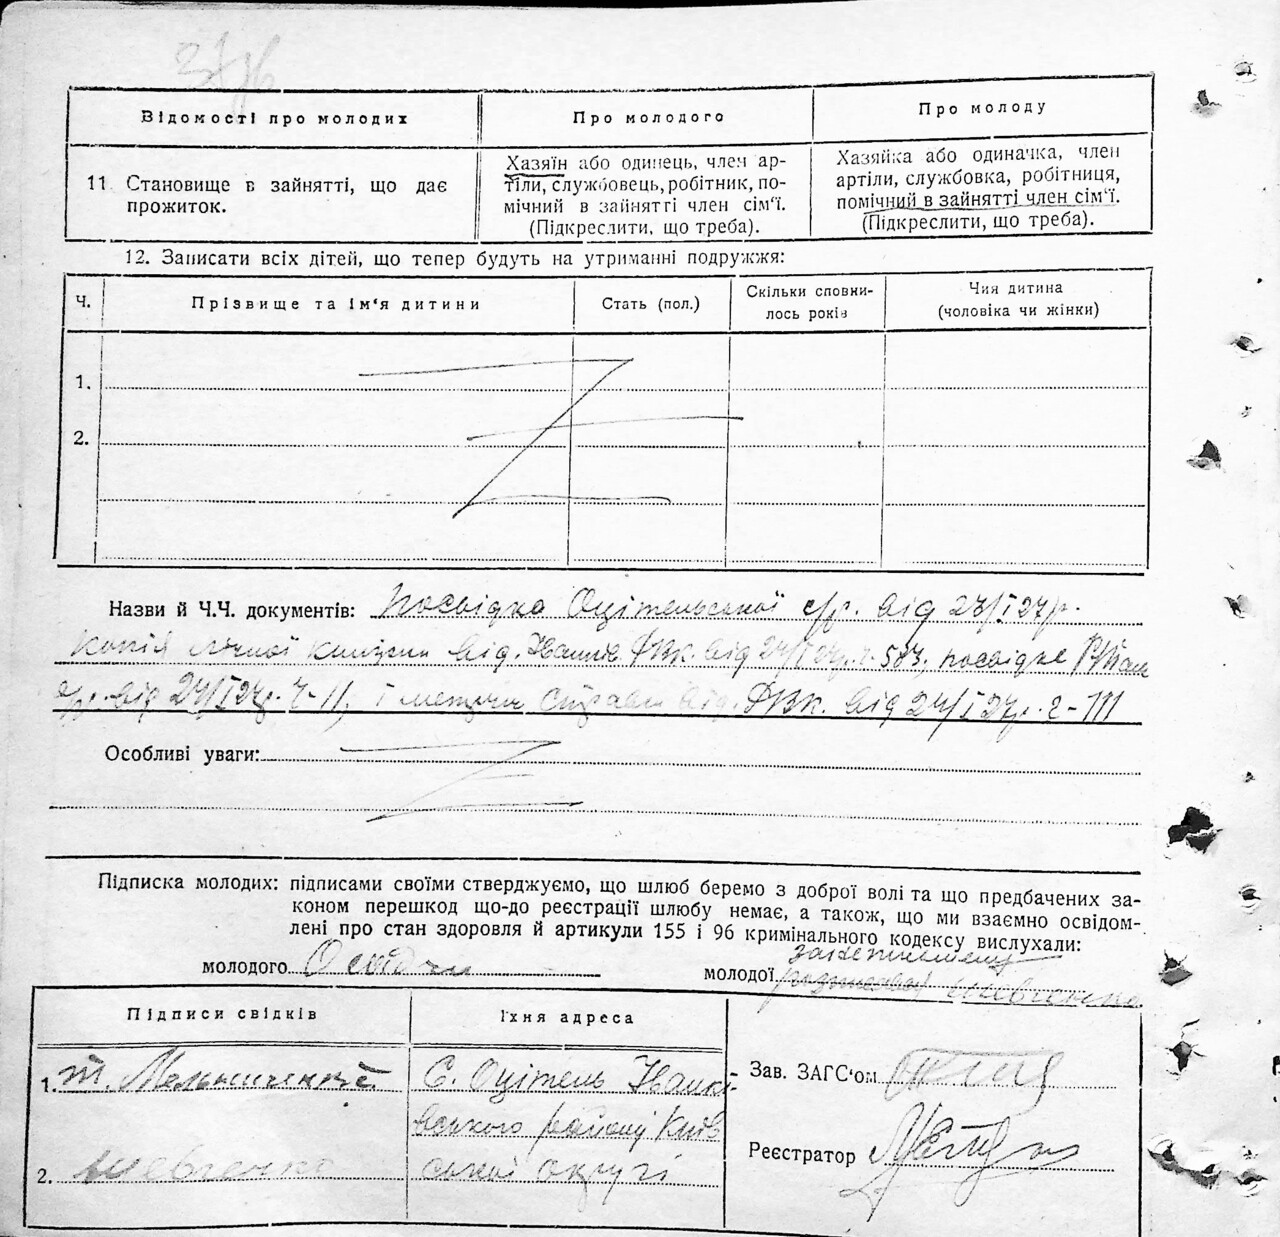 Відомості про молодих
Про молодого
Про молоду
11. Становище в зайнятті, що дає
прожиток.
Хазяїн або одинець, член ар-
тіли, службовець, робітник, по-
мічний в зайнятті член сім'ї.
(Підкреслити, що треба).
Хазяйка або одиначка, член
артіли, службовка, робітниця,
помічний в зайнятті член сім'ї.
(Підкреслити, що треба).
12. Записати всіх дітей, що тепер будуть на утриманні подружжя:
Ч.
Прізвище та ім'я дитини
Стать (пол.)
Скільки сповни-
лось років
Чия дитина
(чоловіка чи жінки)
1.
2.
Назви й Ч.Ч. документів: Посвідка Оцітельської с/р. від 24/I 27р.
копія від. Іванків. РВК. від 24/I 27р. ч. 583, посвідка
с/р. від 24/I 27р. ч-11, і справка від. РВК. від 24/I 27р. ч-111
Особливі уваги:
Підписка молодих: підписами своїми стверджуємо, що шлюб беремо з доброї волі та що предбачених за-
коном перешкод що-до реєстрації шлюбу немає, а також, що ми взаємно освідом-
лені про стан здоров'я й артикули 155 і 96 кримінального кодексу вислухали:
молодого
молодої Шевченко
Підписи свідків
Їхня адреса
1.
С. Оцітель Іванкі-
вського району Київ
ської округи
2. Шевченко
Зав. ЗАГС'ом
Реєстратор